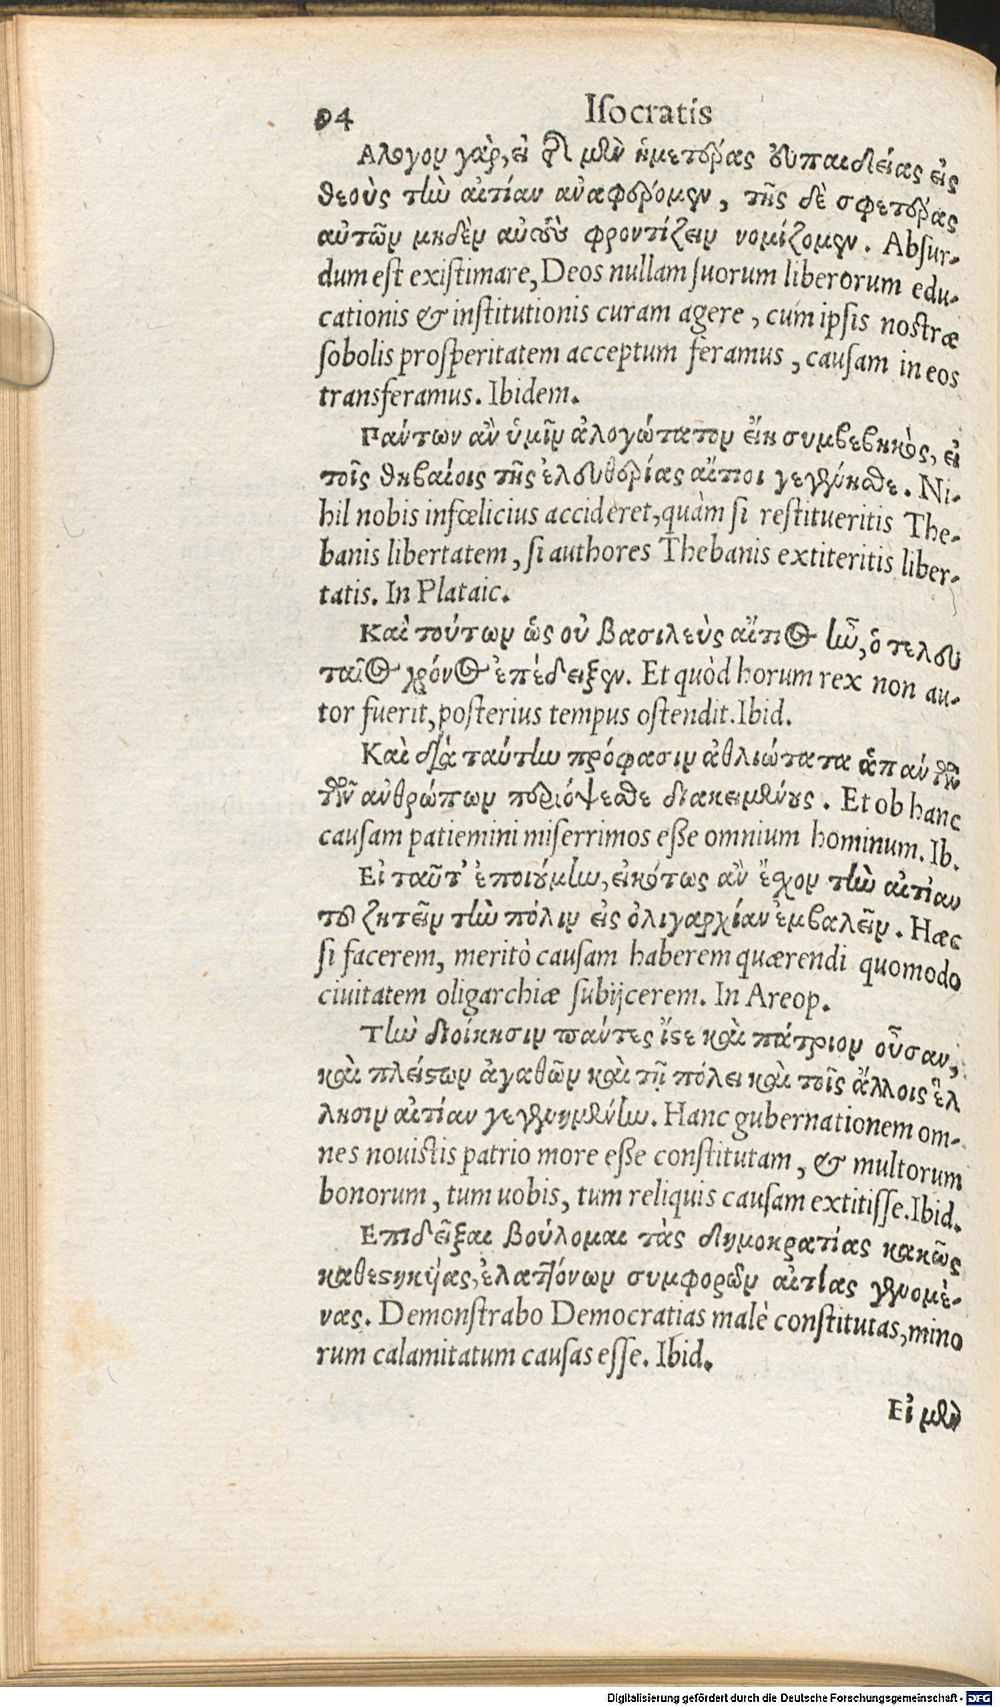 94 Iſocratis
Αλογον γὰρ, εἰ τῆς μὲν ἡμετέρας εὐπαιδείας εἰς
θεοὺς τὴν αἰτίαν ἀναφέρομεν, τῆς δὲ σφετέρας
αὐτῶν μηδὲν αὐτοὺς φροντίζειν νομίζομεν. Abſur-
dum eſt exiſtimare, Deos nullam ſuorum liberorum edu-
cationis & inſtitutionis curam agere, cum ipſis noſtræ
ſobolis proſperitatem acceptum feramus, cauſam in eos
transferamus. Ibidem.
Πάντων ἂν ὑμῖν ἀλογώτατον εἴη συμβεβηκὸς, εἰ
τοῖς θηβαίοις τῆς ἐλευθερίας αἴτιοι γεγένησθε. Ni-
hil nobis infœlicius accideret, quàm ſi reſtitueritis The-
banis libertatem, ſi authores Thebanis extiteritis liber-
tatis. In Plataic.
Καὶ τούτων ὡς οὐ βασιλεὺς αἴτιος ἦν, ὁ τελευ
ταῖος χρόνος ἐπέδειξεν. Et quòd horum rex non au-
tor fuerit, poſterius tempus oſtendit. Ibid.
Καὶ διὰ ταύτην πρόφασιν ἀθλιώτατα ἁπάντων
τῶν ἀνθρώπων περιόψεσθε διακειμένους. Et ob hanc
cauſam patiemini miſerrimos eſſe omnium hominum. Ib.
Εἰ ταῦτ' ἐποιούμην, εἰκότως ἂν ἔχον τὴν αἰτίαν
τοῦ ζητεῖν τὴν πόλιν εἰς ὀλιγαρχίαν ἐμβαλεῖν. Hæc
ſi facerem, meritò cauſam haberem quærendi quomodo
ciuitatem oligarchiæ ſubijcerem. In Areop.
Τὴν διοίκησιν πάντες ἴστε καὶ πάτριον οὖσαν,
καὶ πλείστων ἀγαθῶν καὶ τῇ πόλει καὶ τοῖς ἄλλοις ἕλ
λησιν αἰτίαν γεγενημένην. Hanc gubernationem om-
nes nouiſtis patrio more eſſe conſtitutam, & multorum
bonorum, tum uobis, tum reliquis cauſam extitiſſe. Ibid.
Επιδεῖξαι βούλομαι τὰς δημοκρατίας κακῶς
καθεστηκυίας, ἐλαττόνων συμφορῶν αἰτίας γενομέ-
νας. Demonſtrabo Democratias malè conſtitutas, mino
rum calamitatum cauſas eſſe. Ibid.
Εἰ μὲν
Digitalisierung gefördert durch die Deutsche Forschungsgemeinschaft - DFG